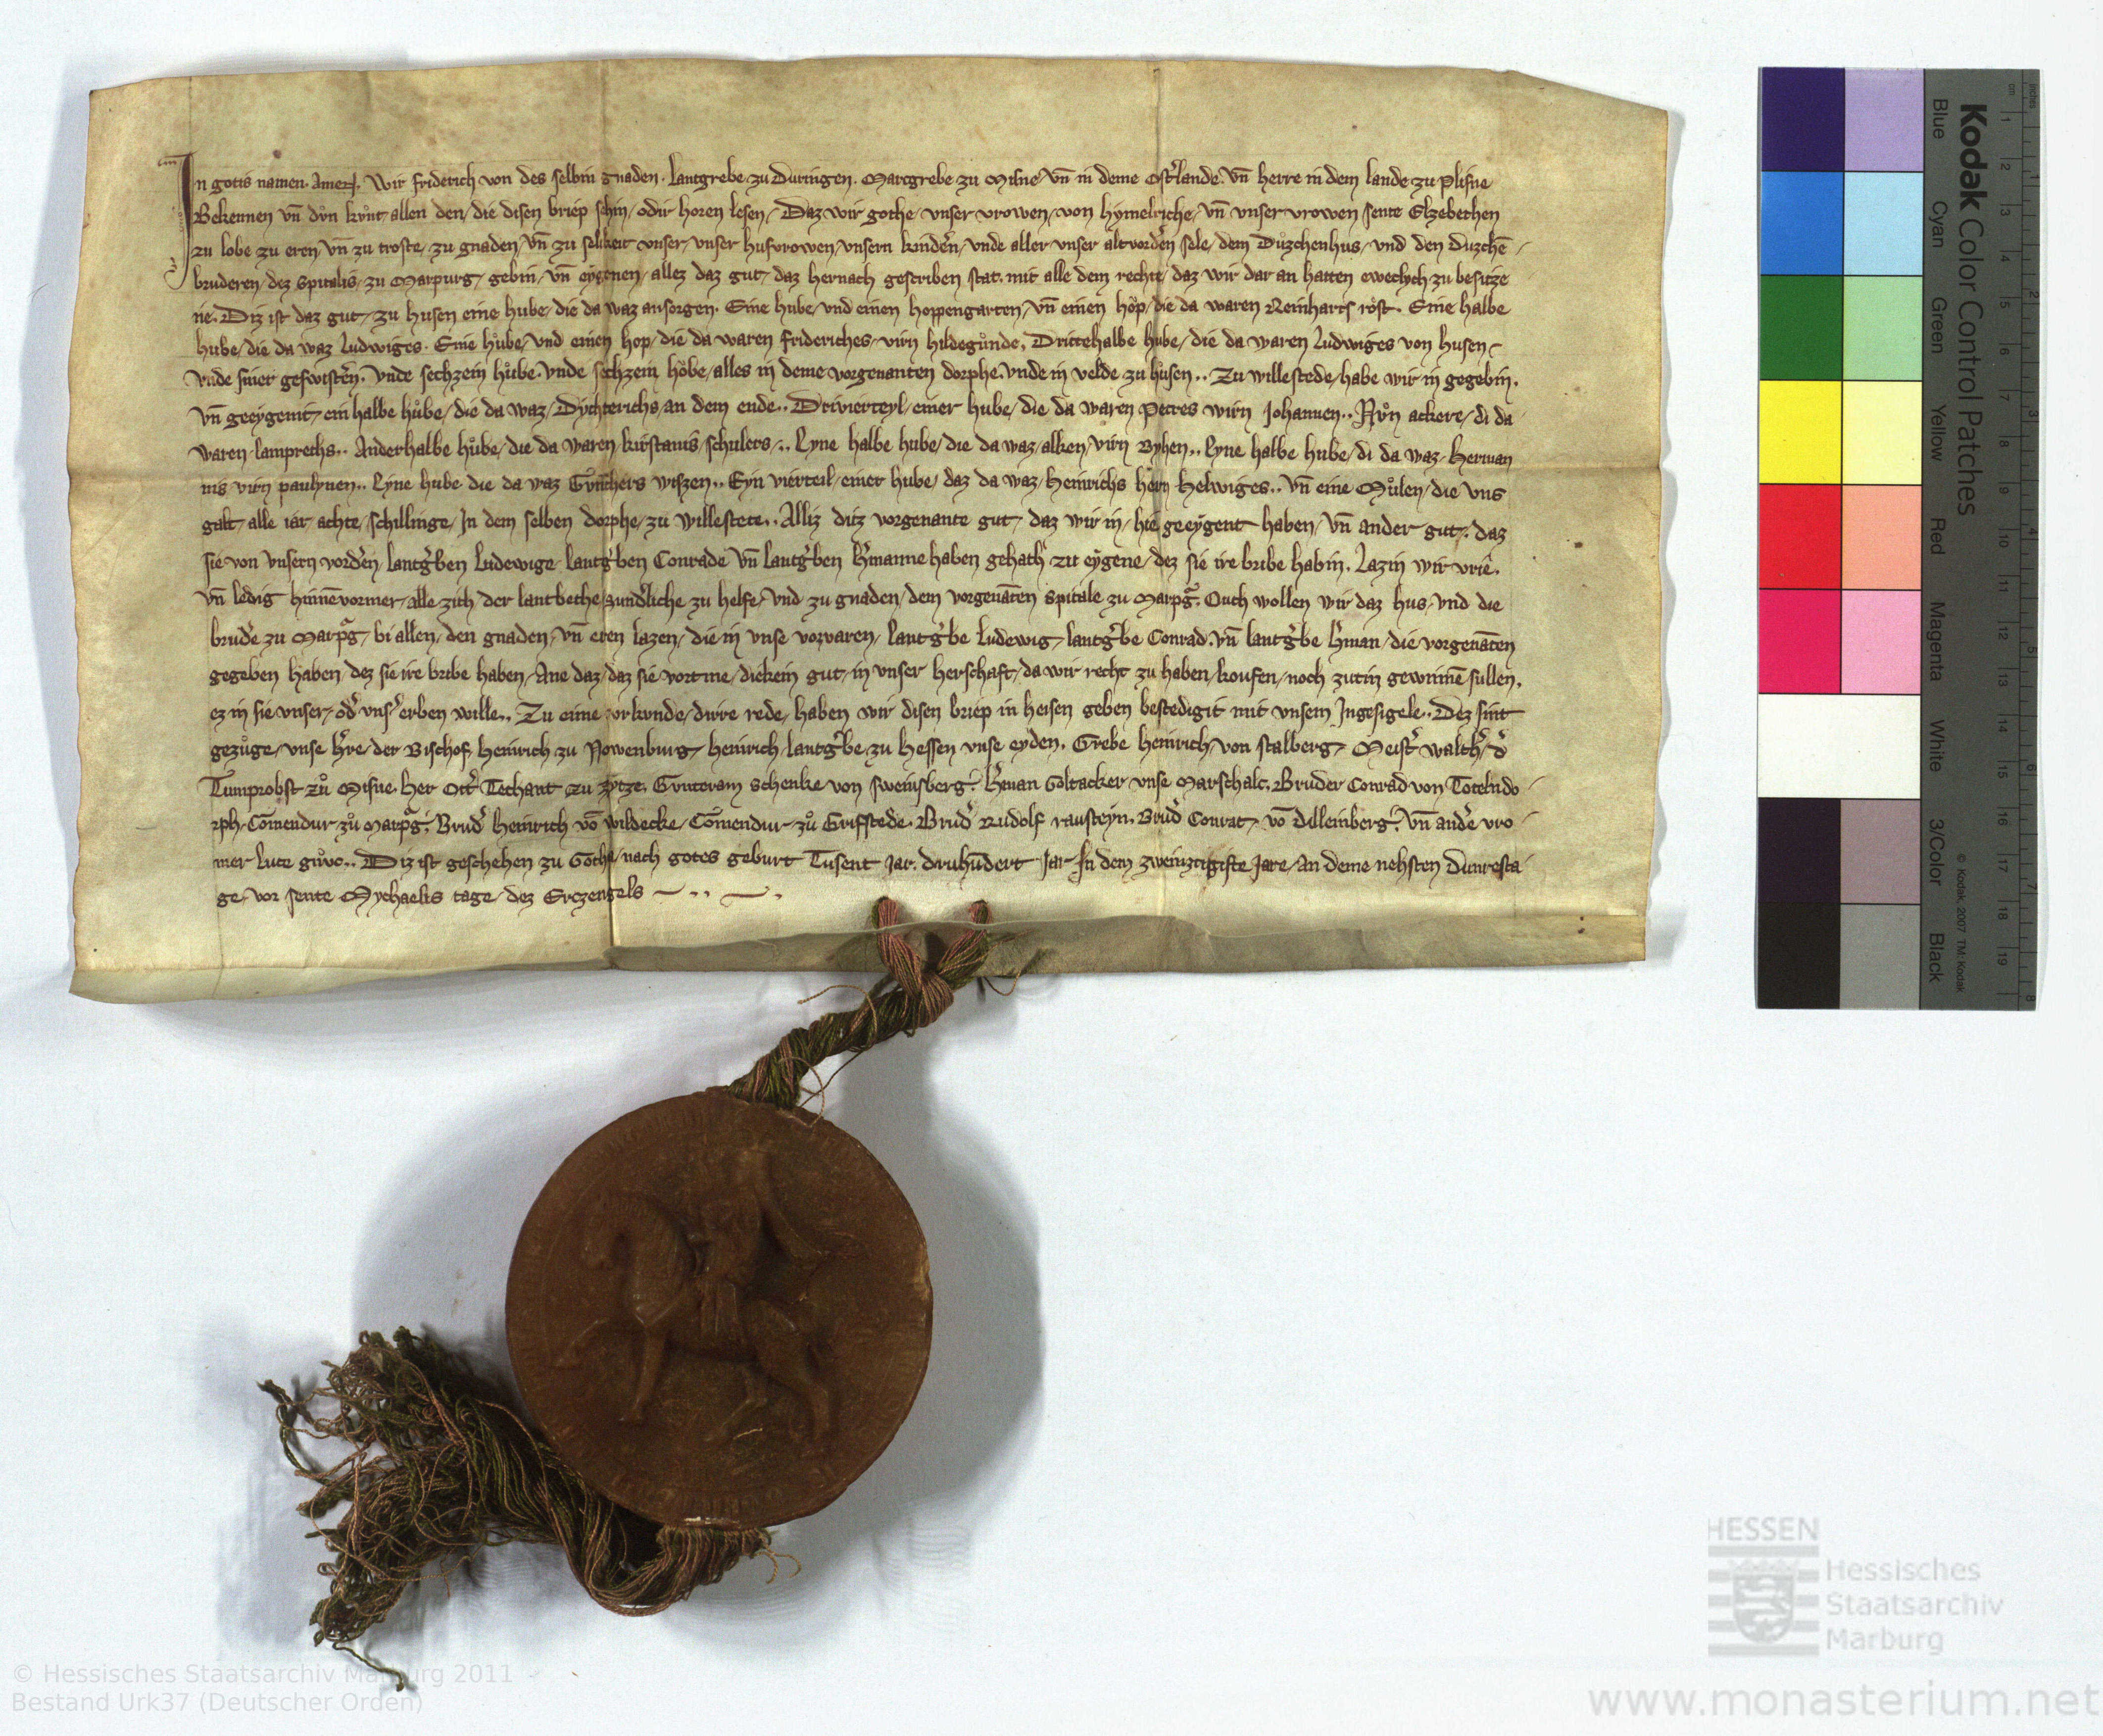 In gotis namen. Amen. Wir friderich von des selbin gnaden. Lantgrebe zu Duringen. Marcgrebe zu Misne vn̄ in deme Ostˀlande. vn̄ herre in dem lande zu Plisne
Bekennen vn̄ důn kůnt allen den, die disen briep sehin, odir horen lesen, Daz wir gothe, unser vrowen, von hymelriche, vn̄ unser vrowen sente Elzebethen
zu lobe zu eren, vn̄ zu troste, zu gnaden, vn̄ zu selikeit unser, unser husvrowen, unsern kindeˀn, unde aller unser altvordeˀn sele, dem Důzchenhus, und den duzchē
bruderen, dez spitalis, zu Marpurg, gebin, vn̄ eygenen, allez daz gut, daz hernach gescriben stat. mit alle dem rechte, daz wir dar an hatten eweclych zu besitze
ne. Diz ist daz gut, zu husen eine hube, die da waz ansorgen. Eine hube, und einen hoppengarten, vn̄ einen hop, die da waren Reinharts rost. Eine halbe
hube, die da waz Ludwiges. Eine hůbe, und einen hop, die da waren frideriches, virn hildegůnde. Drittehalbe hube, die da waren Ludwiges von husen,
unde siner geswisteˀn. unde sechzein hůbe. unde sechzein höbe, alles in deme vorgenanten dorphe. unde in velde zu hůsen.. Zu willestede, habe wir in gegebin.
vn̄ geeygenit, ein halbe hůbe, die da waz, Dychterichs, an dem ende.. Drivierteyl, einer hube, die da waren Petres wirn Johannen.. Nůn ackere, di da
waren lamprechs.. Anderhalbe hůbe, die da waren kirstanis, schulers,.. Eyne halbe hube, die da waz, alken, virn Byhen.. Eyne halbe hube, di da waz, herman
nis virn paulynen.. Eyne hube die da waz Gůnthers wiszen.. Eyn vierteil, einer hube, daz da waz, heinrichs hern helwiges.. vn̄ eine Můlen, die uns
galt, alle iar achte, schillinge, In dem selben dorphe, zu willestete.. Alliz ditz vorgenante gut, daz wir in, hie geeygent haben, vn̄ ander gut, daz
sie von unsern vordeˀn, lantgˀben Ludewige lantgˀben Conrade vn̄ lantgˀben hˀmanne haben gehath zu eygene, dez sie ire bribe habin. Lazin wir vrie.
vn̄ ledig hinnēvormer, alle zith, der lantbethe sundˀliche zu helfe, und zu gnaden, dem vorgenāten spitale zu Marpg. Ouch wollen wir daz hus, und die
brudˀe zu Marpg, bi allen, den gnaden, vn̄ eren lazen, die in unse vorvaren, lantgˀbe Ludewig, lantgˀbe Conrad. vn̄ lantgˀbe hˀman, die vorgenāten
gegeben haben, dez sie ire bribe haben, Ane daz, daz sie vortme, dickein gut, in unser herschaft, da wir recht zu haben, koufen, noch zutin gewinnē sullen.
ez in sie unser, odˀ unsˀ erben wille.. Zu eime orkunde, dirre rede, haben wir disen briep in heisen geben bestedigit mit unsem Ingesigele.. Dez sint
gezůge, unse hˀre, der Bischof, heinrich zu Nowenburg, heinrich, lantgˀbe zu hessen unse eyden. Grebe heinrich von stalberg, Meistˀ walthˀ, dˀ
Tumprobst zů Misne. her Ottˀ Techant zu zytze. Gunteram schenke von sweinsberg. hˀman Goltacker unse Marschalc. Bruder Conrad von Totelndo
rph, Cōmendur, zů Marpg. Brudˀ heinrich vō wildecke, Cōmendur, zů Grifstede. Brudˀ Rudolf rausteyn. Brudˀ Conrat, vō dillemberg. vn̄ andˀe vro
mer lute gůvc.. Diz ist geschehen zu Gotha, nach gotes geburt Tusent Jar. druhūdert Jar In dem zweinzigiste Jare, an deme nehsten dunresta
ge, vor sente Mychaelis tage, dez Erczengels
Kodak Color Control Patches
Blue Cyan Green Yellow Red Magenta White 3/Color Black
© Kodak, 2007 TM: Kodak
cm 1 2 3 4 5 6 7 8 9 10 11 12 13 14 15 16 17 18 19
inches 1 2 3 4 5 6 7 8
HESSEN
Hessisches
Staatsarchiv
Marburg
© Hessisches Staatsarchiv Marburg 2011
Bestand Urk37 (Deutscher Orden)
www.monasterium.net